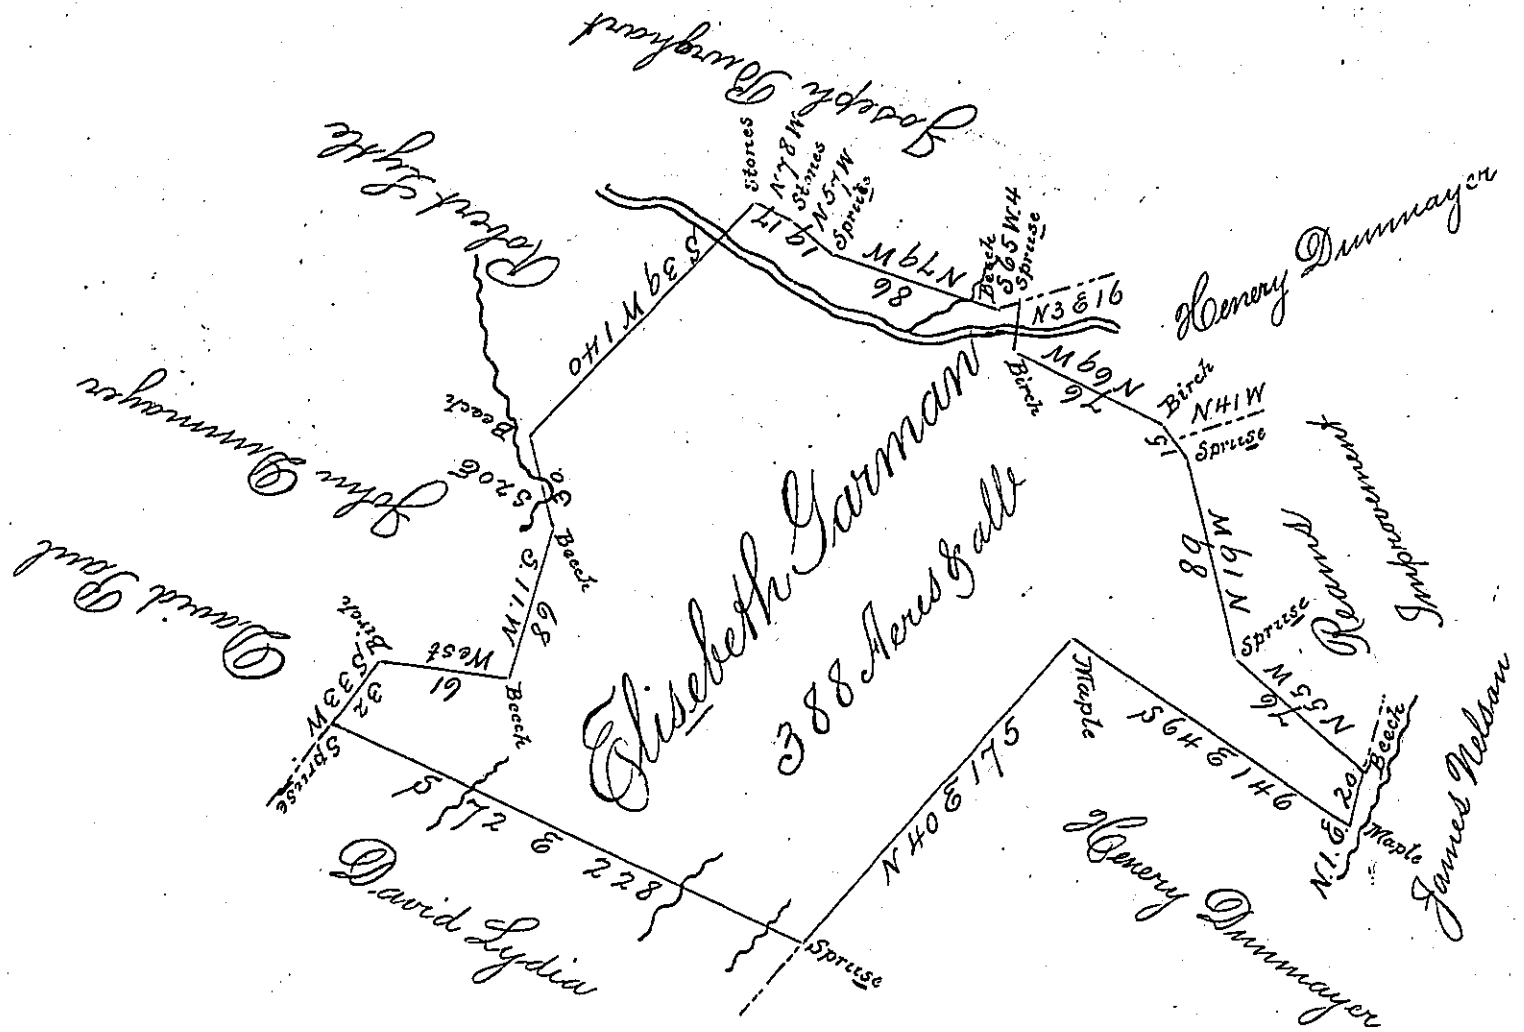 Joseph Burghart
Robert Lytle
John Dunmayer
David Paul
David Lydia
Henery Dunmayer
Reams
Improvement
James Nelson
Henery Dunmayer
Elisebeth Garman
388 Acres & allc
Stones
N 78 W
17
Stones
N 57 W
19
Spruse
N 79 W
86
Beech
S 65 W. 4
Spruse
N 3 E 16
Birch
N 69 W
76
Birch
N 41 W
15
Spruse
N 19 W
89
Spruse
N 55 W
76
Beech
20
N. 1. E
Maple
S 64 E 146
Maple
N 40 E 175
Spruse
S 72 E 228
Spruse
S. 33 W
32
Birch
West
61
Beech
S 11. W
68
Beech
S 20 E
30.
Beach
S 39 W 140